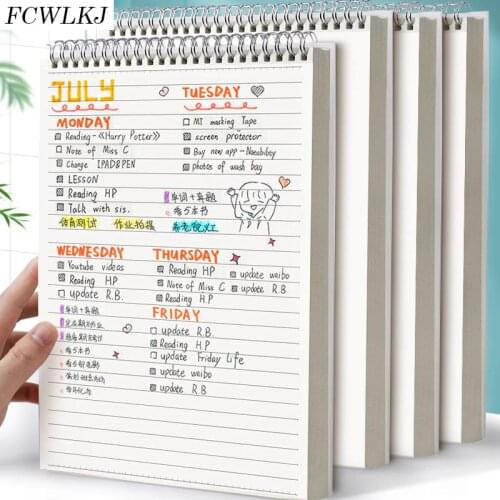 FCWLKJ
JULY
MONDAY
Reading-《Harry Potter》
Note of Miss C
Change IPAD&PEN
LESSON
Reading HP
Talk with sis.
体育测试 作业拍摄
TUESDAY
MT masking Tape
screen protector
Buy new app-Notability
photos of wash bag
单词+真题
看5本书
WEDNESDAY
Youtube videos
Reading HP
update R.B.
单词+真题
看5本书
THURSDAY
Reading HP
update weibo
Note of Miss C
update R.B
Reading H.P
FRIDAY
update R.B.
Reading H.P
update Friday Life
update weibo
update R.B